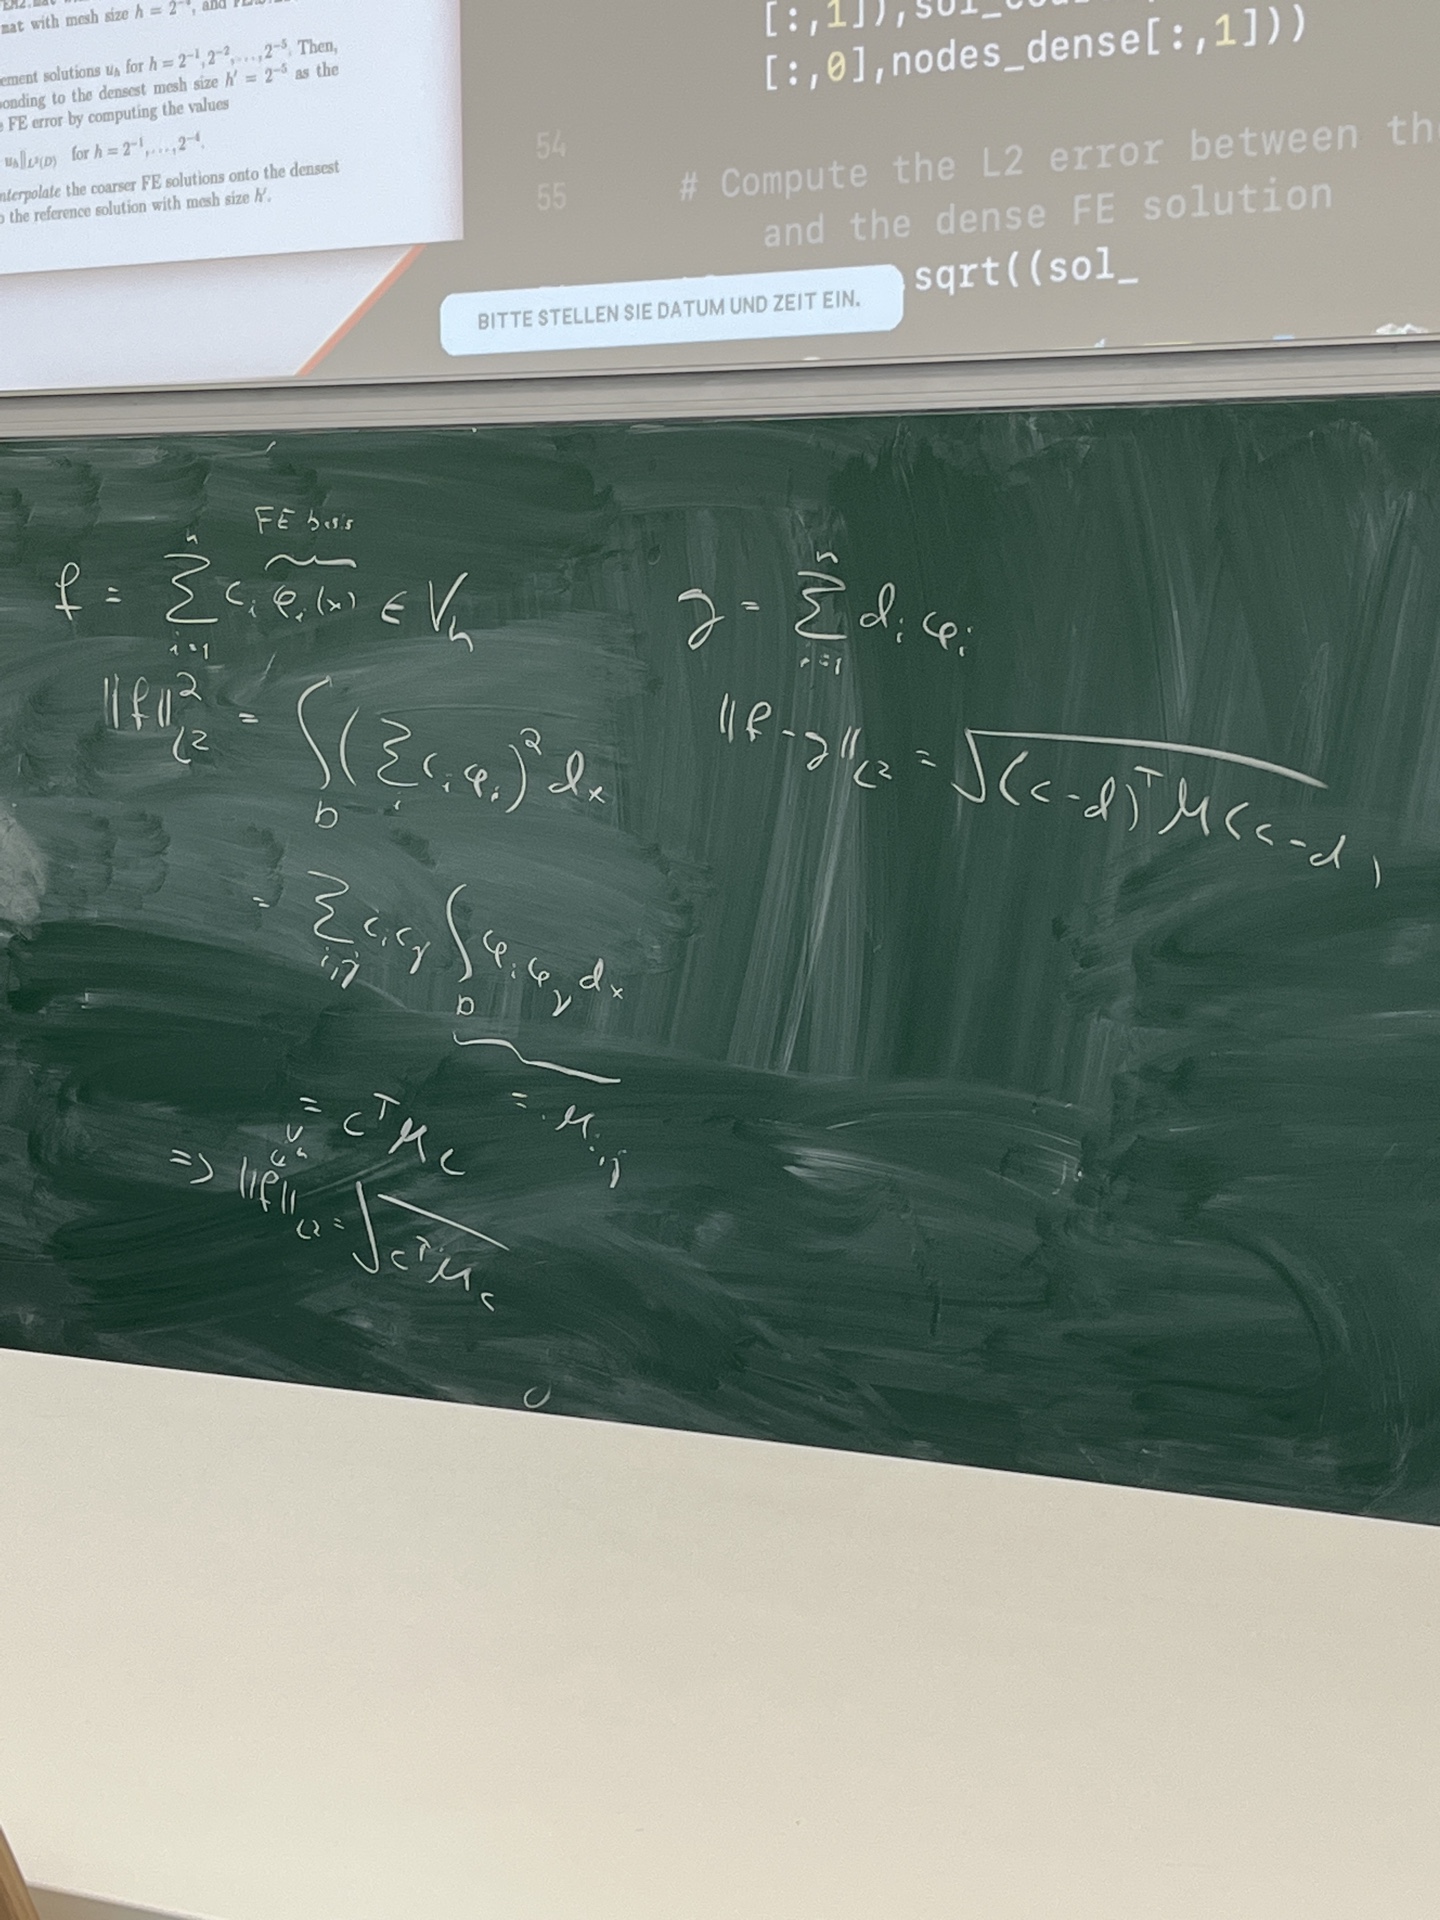 mat with mesh size h = 2⁻⁴, and
ement solutions uₕ for h = 2⁻¹, 2⁻², . . . , 2⁻⁵. Then,
onding to the densest mesh size h′ = 2⁻⁵ as the
FE error by computing the values
uₕ‖_{L²(D)} for h = 2⁻¹, . . . , 2⁻⁴.
nterpolate the coarser FE solutions onto the densest
the reference solution with mesh size h′.
[:,1]),sol_
[:,0],nodes_dense[:,1]))
54
55 # Compute the L2 error between the
and the dense FE solution
sqrt((sol_
BITTE STELLEN SIE DATUM UND ZEIT EIN.
FE basis
f = ∑_{i=1}^{n} c_i φ_i(x) ∈ V_h
‖f‖²_{L²} = ∫_D (∑_i c_i φ_i)² dx
= ∑_{i,j} c_i c_j ∫_D φ_i φ_j dx
= M_{ij}
= cᵀMc
=> ‖f‖_{L²} = √cᵀMc
g = ∑_{i=1}^{n} d_i φ_i
‖f-g‖_{L²} = √(c-d)ᵀM(c-d)